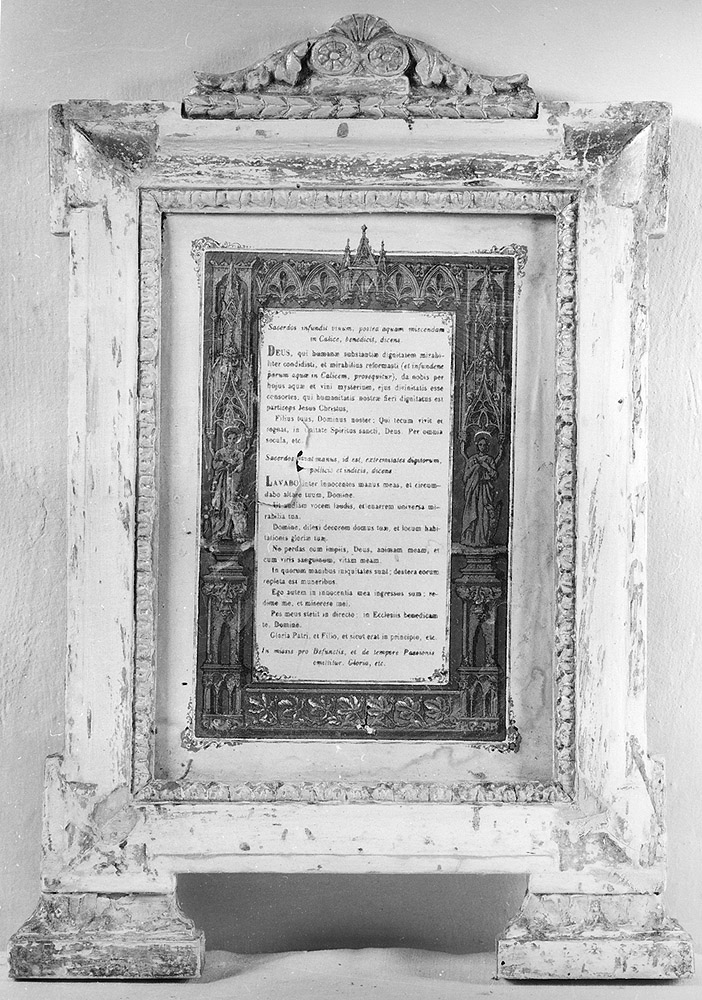 Sacerdos infundit vinum, postea aquam miscendam
in Calice, benedicit, dicens.
DEUS, qui humanæ substantiæ dignitatem mirabi-
liter condidisti, et mirabilius reformasti (et infundens
parum aquæ in Calicem, prosequitur), da nobis per
hujus aquæ et vini mysterium, ejus divinitatis esse
consortes, qui humanitatis nostræ fieri dignatus est
particeps Jesus Christus,
Filius tuus, Dominus noster; Qui tecum vivit et
regnat, in unitate Spiritus sancti, Deus. Per omnia
sæcula, etc.
Sacerdos lavat manus, id est, extremitates digitorum,
pollicis et indicis, dicens
LAVABO inter innocentes manus meas, et circum-
dabo altare tuum, Domine.
Ut audiam vocem laudis, et enarrem universa mi-
rabilia tua.
Domine, dilexi decorem domus tuæ, et locum habi-
tationis gloriæ tuæ.
Ne perdas cum impiis, Deus, animam meam, et
cum viris sanguinum, vitam meam.
In quorum manibus iniquitates sunt; dextera eorum
repleta est muneribus.
Ego autem in innocentia mea ingressus sum; re-
dime me, et miserere mei.
Pes meus stetit in directo; in Ecclesiis benedicam
te, Domine.
Gloria Patri, et Filio, et sicut erat in principio, etc.
In missis pro Defunctis, et de tempore Passionis
omittitur. Gloria, etc.